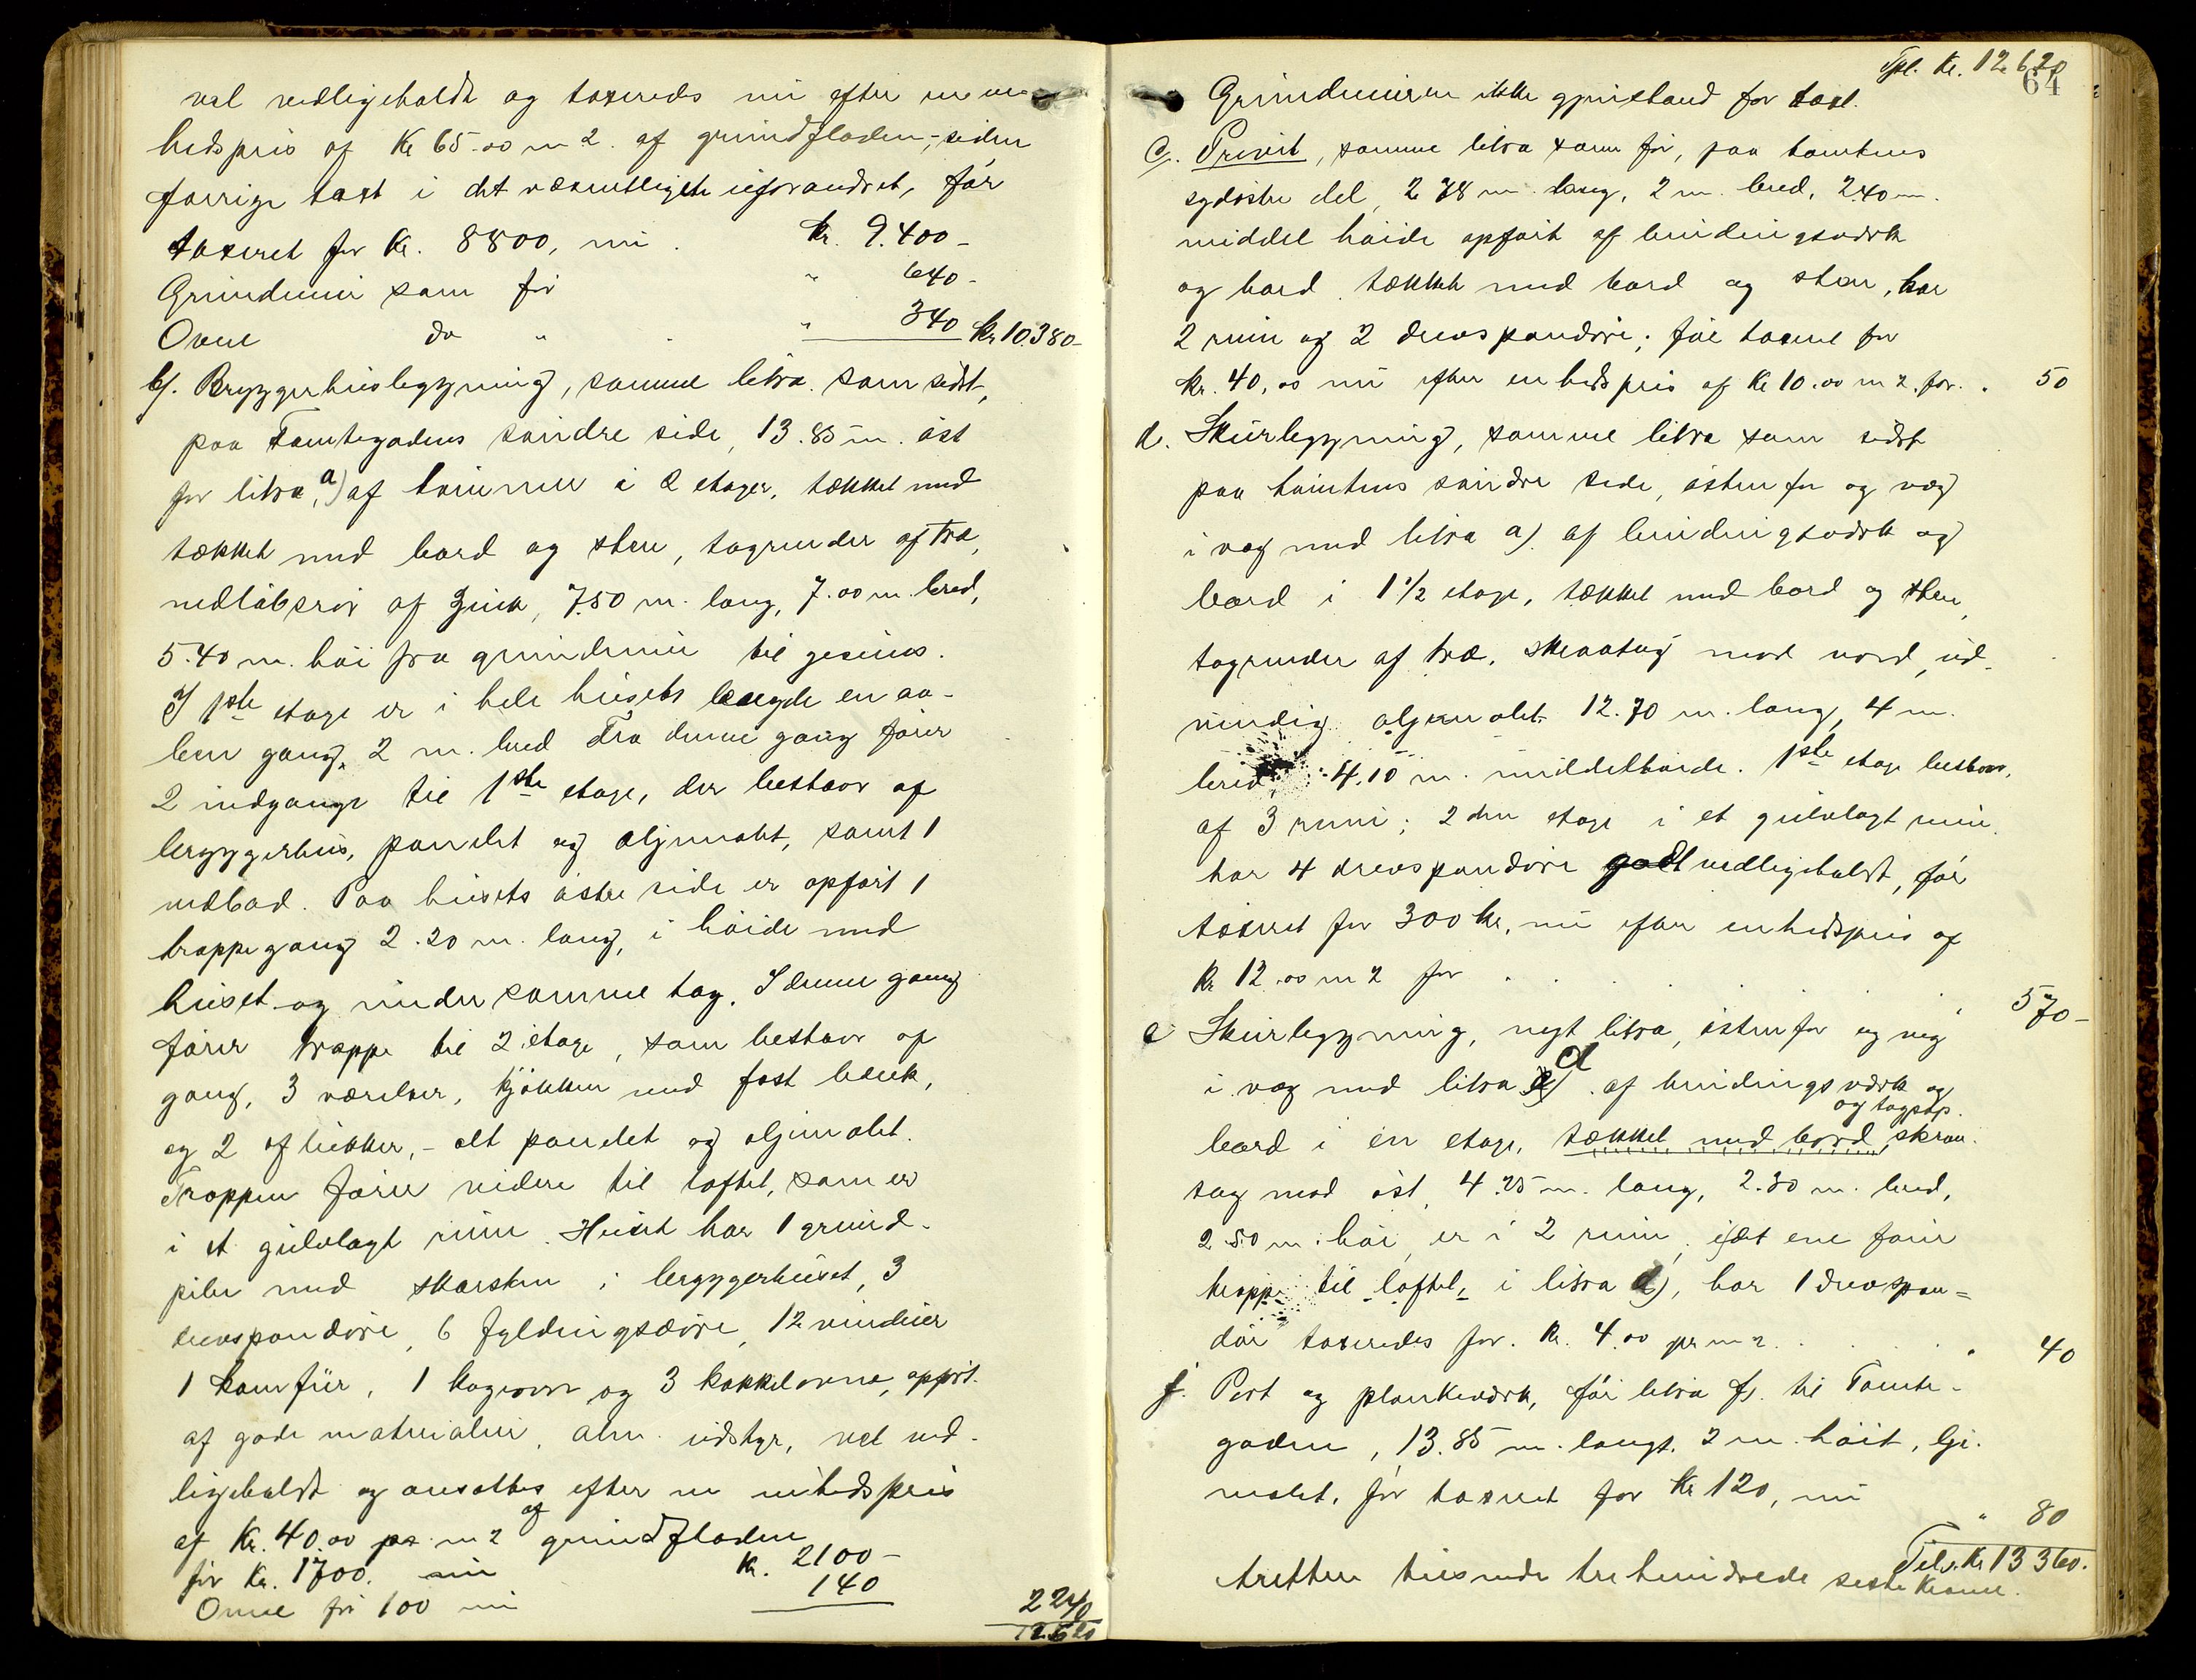 vel vedligeholdt og taxeredes nu efter en en-
hedspris af Kr 65.00 m2. af grundfladen, siden
forrige taxt i det væsentligste uforandret, før
taxeret for Kr. 8800, nu . Kr. 9.400-
Grundmur som før " 640-
Ovne do " . " 340 Kr 10.380-
b). Bryggerhusbygning, samme litra som sidst,
paa Tomtegadens søndre side, 13.85 m. øst
for litra a) af tømmer i 2 etager, tækket med
tækket med bord og sten, tagrender af træ,
nedløbsrør af zink, 7.50 m. lang, 7.00 m. bred,
5.40 m. høi fra grundmur til gesims.
I 1ste etage er i hele husets længde en aa-
ben gang, 2 m. bred Fra denne gang fører
2 indgange til 1ste etage, der bestaar af
bryggerhus, panelet og oljemalt, samt 1
vedbod. Paa husets østre side er opført 1
trappegang 2.20 m. lang, i høide med
huset og under samme tag. I denne gang
fører trappe til 2. etage, som bestaar af
gang, 3 værelser, kjøkken med fast bænk,
og 2 aflukker, - alt panelet og oljemalet.
Trappen fører videre til loftet, som er
i et gulvlagt rum. Huset har 1 grund-
piber med skorsten i bryggerhuset, 3
drevspandøre, 6 fyldingsdøre, 12 vinduer
1 komfur, 1 kogeovn og 3 kakkelovne, opført
af gode materialier, alm. udstyr, vel ved-
ligeholdt og ansættes efter en enhedspris
af Kr. 40.00 pr m2 af grundfladen
før Kr. 1700. nu Kr. 2100-
Ovne før 100 nu 140
2240
12620
Tpt. Kr. 12620
64
Grundmuren ikke gjenstand for taxt.
c). Privet, samme litra som før, paa tomtens
sydøstre del, 2.38 m. lang, 2 m. bred, 2.40 m.
middel høide opført af bindingsværk
og bord tækket med bord og sten, har
2 rum og 2 drevspandøre; før taxeret for
kr. 40,00 nu efter enhedspris af Kr 10.00 m2. for . . 50
d. Skurbygning, samme litra som sidst
paa tomtens søndre side, østenfor og væg
i væg med litra a). af bindingsværk og
bord i 1 1/2 etage, tækket med bord og sten,
tagrender af træ, skraatag mod nord, ud-
vendig oljemalet 12.70 m. lang, 4 m.
bred, 4.10 m. middelhøide. 1ste etage bestaar
af 3 rum; 2den etage i et gulvlagt rum
har 4 drevspandøre godt vedligeholdt, før
taxeret for 300 kr, nu efter enhedspris af
Kr 12.00 m2 for . . . . . 570-
e Skurbygning, nyt litra, østenfor og væg
i væg med litra d af bindingsværk og
bord i en etage, tækket med bord og tagpap. skraa-
tag mod øst, 4.25 m. lang, 2.30 m. bred,
2.50 m. høi, er i 2 rum, i det ene fører
trappe til loftet, i litra d), har 1 drevspan-
dør taxeredes for. Kr. 4.00 pr m2. . . . 40
f. Port og plankeværk, før litra f). til Tomte-
gaden, 13.85 m. langt. 2 m. høit, olje-
malet. før taxeret for Kr 120, nu
" 80
Tils. Kr 13 360.
tretten tusende trehundrede seksti Kroner.